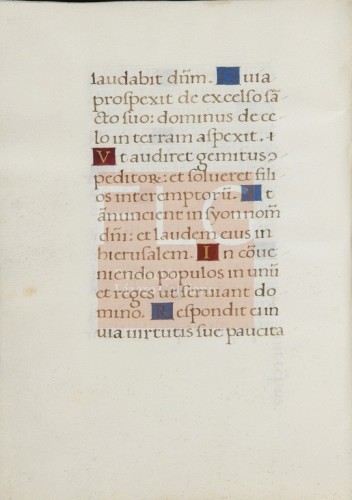 laudabit dũm. uia
prospexit de excelso sã
cto suo: dominus de ce
lo in terram aspexit.
Vt audiret gemitus
peditoꝝ: et solueret fili
os interemptorũ. t
ãnuncient in syon nom̃
dñi: et laudem eius in
hierusalem. In cõue
niendo populos in unũ
et reges ut seruiant do
mino. Respondit ei in
uia uirtutis sue paucita